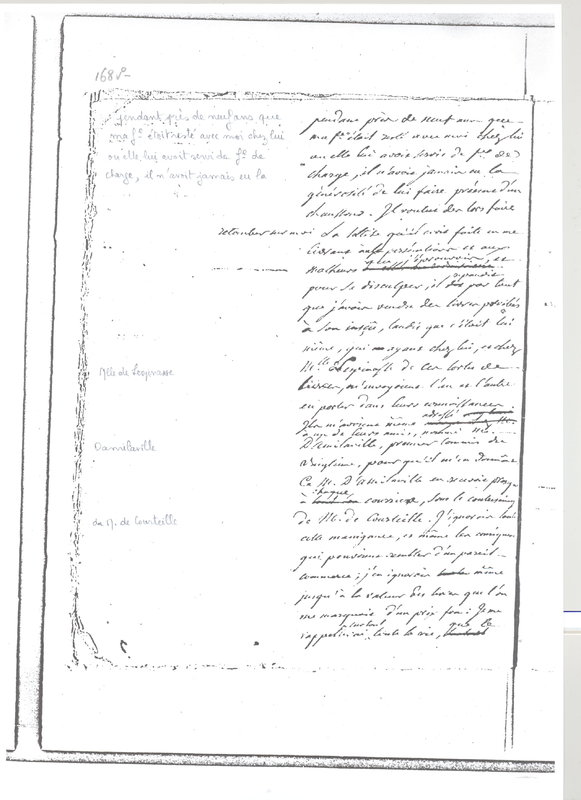 168 v°
pendant près de neuf ans que
ma fe étoit resté avec moi chez lui
où elle lui avoit servi de fe de
charge, il n'avoit jamais eu la
pendant près de neuf ans que
ma fe était resté avec moi chez lui
où elle lui avoit servie de fe de
charge, il n'avoit jamais eu la
générosité de lui faire présent d'un
chausson. Il voulut des lors faire
retomber sur moi la sottise qu'il avoit faite en me
livrant aux persécutions et aux
malheurs que j'éprouvois, et
pour se disculper, il répandit par tout
que j'avois vendu des livres prohibés
à son insçu, tandis que c'étoit lui
même, qui ayant chez lui, et chez
Mlle Lespinasse de ces sortes de
livres, m'envoyoient l'un et l'autre
en porter dans leurs connoissances.
Ils m'avoient même adressé
à un de leurs amis, nommé Mr.
D'amilaville, premier commis du
vingtième, pour qu'il m'en donnât
Ce M. D'amilaville en recevoit presq
à chaque courier, sous le contreseing
de M. de Courteille. J'ignorois toute
cette manigance, et même les conséquences
qui pouvoient résulter d'un pareil
commerce; j'en ignorois même
jusqu'à la valeur des livres que l'on
me marquoit d'un prix fou: Je me
rappellerai toute la vie, que le
Mlle de Lespinasse
Damilaville
du M. de Courteille